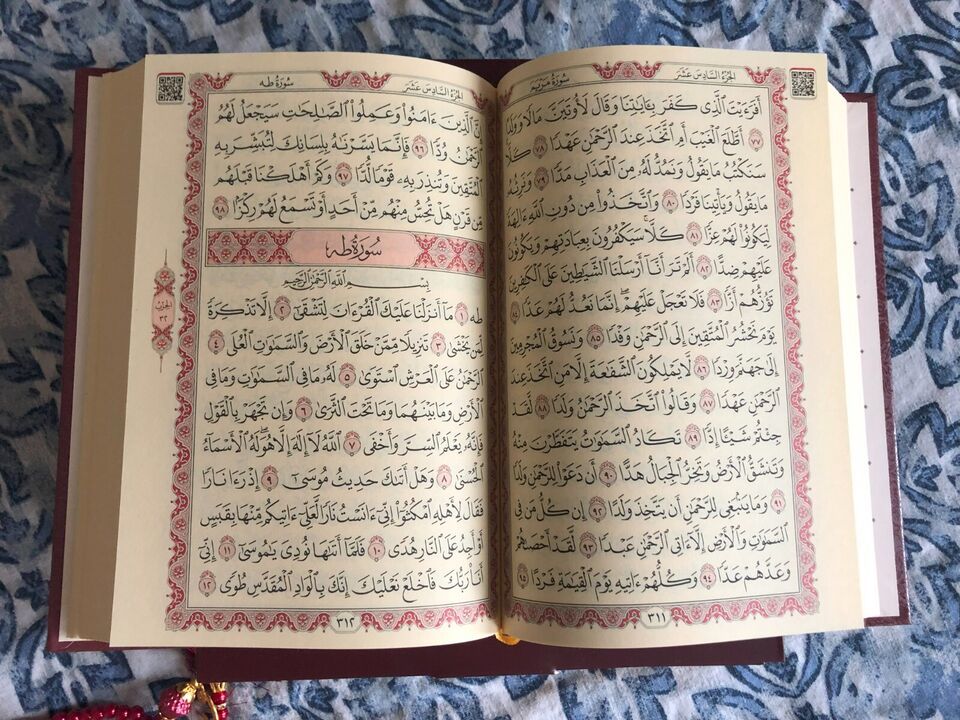 الجزء السادس عشر
سورة مريم
أَفَرَءَيْتَ ٱلَّذِى كَفَرَ بِـَٔايَـٰتِنَا وَقَالَ لَأُوتَيَنَّ مَالًا وَوَلَدًا
٧٧ أَطَّلَعَ ٱلْغَيْبَ أَمِ ٱتَّخَذَ عِندَ ٱلرَّحْمَـٰنِ عَهْدًا ٧٨ كَلَّا
سَنَكْتُبُ مَا يَقُولُ وَنَمُدُّ لَهُۥ مِنَ ٱلْعَذَابِ مَدًّا ٧٩ وَنَرِثُهُۥ
مَا يَقُولُ وَيَأْتِينَا فَرْدًا ٨٠ وَٱتَّخَذُوا۟ مِن دُونِ ٱللَّهِ ءَالِهَةً
لِّيَكُونُوا۟ لَهُمْ عِزًّا ٨١ كَلَّا سَيَكْفُرُونَ بِعِبَادَتِهِمْ وَيَكُونُونَ
عَلَيْهِمْ ضِدًّا ٨٢ أَلَمْ تَرَ أَنَّآ أَرْسَلْنَا ٱلشَّيَـٰطِينَ عَلَى ٱلْكَـٰفِرِينَ
تَؤُزُّهُمْ أَزًّا ٨٣ فَلَا تَعْجَلْ عَلَيْهِمْ إِنَّمَا نَعُدُّ لَهُمْ عَدًّا ٨٤
يَوْمَ نَحْشُرُ ٱلْمُتَّقِينَ إِلَى ٱلرَّحْمَـٰنِ وَفْدًا ٨٥ وَنَسُوقُ ٱلْمُجْرِمِينَ
إِلَىٰ جَهَنَّمَ وِرْدًا ٨٦ لَّا يَمْلِكُونَ ٱلشَّفَـٰعَةَ إِلَّا مَنِ ٱتَّخَذَ عِندَ
ٱلرَّحْمَـٰنِ عَهْدًا ٨٧ وَقَالُوا۟ ٱتَّخَذَ ٱلرَّحْمَـٰنُ وَلَدًا ٨٨ لَّقَدْ
جِئْتُمْ شَيْـًٔا إِدًّا ٨٩ تَكَادُ ٱلسَّمَـٰوَٰتُ يَتَفَطَّرْنَ مِنْهُ
وَتَنشَقُّ ٱلْأَرْضُ وَتَخِرُّ ٱلْجِبَالُ هَدًّا ٩٠ أَن دَعَوْا۟ لِلرَّحْمَـٰنِ وَلَدًا
٩١ وَمَا يَنۢبَغِى لِلرَّحْمَـٰنِ أَن يَتَّخِذَ وَلَدًا ٩٢ إِن كُلُّ مَن فِى
ٱلسَّمَـٰوَٰتِ وَٱلْأَرْضِ إِلَّآ ءَاتِى ٱلرَّحْمَـٰنِ عَبْدًا ٩٣ لَّقَدْ أَحْصَىٰهُمْ
وَعَدَّهُمْ عَدًّا ٩٤ وَكُلُّهُمْ ءَاتِيهِ يَوْمَ ٱلْقِيَـٰمَةِ فَرْدًا ٩٥
٣١١
الجزء السادس عشر
سورة طه
إِنَّ ٱلَّذِينَ ءَامَنُوا۟ وَعَمِلُوا۟ ٱلصَّـٰلِحَـٰتِ سَيَجْعَلُ لَهُمُ
ٱلرَّحْمَـٰنُ وُدًّا ٩٦ فَإِنَّمَا يَسَّرْنَـٰهُ بِلِسَانِكَ لِتُبَشِّرَ بِهِ
ٱلْمُتَّقِينَ وَتُنذِرَ بِهِۦ قَوْمًا لُّدًّا ٩٧ وَكَمْ أَهْلَكْنَا قَبْلَهُم
مِّن قَرْنٍ هَلْ تُحِسُّ مِنْهُم مِّنْ أَحَدٍ أَوْ تَسْمَعُ لَهُمْ رِكْزًۢا ٩٨
سورة طه
بِسْمِ ٱللَّهِ ٱلرَّحْمَـٰنِ ٱلرَّحِيمِ
طه ١ مَآ أَنزَلْنَا عَلَيْكَ ٱلْقُرْءَانَ لِتَشْقَىٰٓ ٢ إِلَّا تَذْكِرَةً
لِّمَن يَخْشَىٰ ٣ تَنزِيلًا مِّمَّنْ خَلَقَ ٱلْأَرْضَ وَٱلسَّمَـٰوَٰتِ ٱلْعُلَى ٤
ٱلرَّحْمَـٰنُ عَلَى ٱلْعَرْشِ ٱسْتَوَىٰ ٥ لَهُۥ مَا فِى ٱلسَّمَـٰوَٰتِ وَمَا فِى
ٱلْأَرْضِ وَمَا بَيْنَهُمَا وَمَا تَحْتَ ٱلثَّرَىٰ ٦ وَإِن تَجْهَرْ بِٱلْقَوْلِ
فَإِنَّهُۥ يَعْلَمُ ٱلسِّرَّ وَأَخْفَى ٧ ٱللَّهُ لَآ إِلَـٰهَ إِلَّا هُوَ لَهُ ٱلْأَسْمَآءُ
ٱلْحُسْنَىٰ ٨ وَهَلْ أَتَىٰكَ حَدِيثُ مُوسَىٰٓ ٩ إِذْ رَءَا نَارًا
فَقَالَ لِأَهْلِهِ ٱمْكُثُوٓا۟ إِنِّىٓ ءَانَسْتُ نَارًا لَّعَلِّىٓ ءَاتِيكُم مِّنْهَا بِقَبَسٍ
أَوْ أَجِدُ عَلَى ٱلنَّارِ هُدًى ١٠ فَلَمَّآ أَتَىٰهَا نُودِىَ يَـٰمُوسَىٰٓ ١١ إِنِّىٓ
أَنَا۠ رَبُّكَ فَٱخْلَعْ نَعْلَيْكَ إِنَّكَ بِٱلْوَادِ ٱلْمُقَدَّسِ طُوًى ١٢
الحزب
٣٢
٣١٢